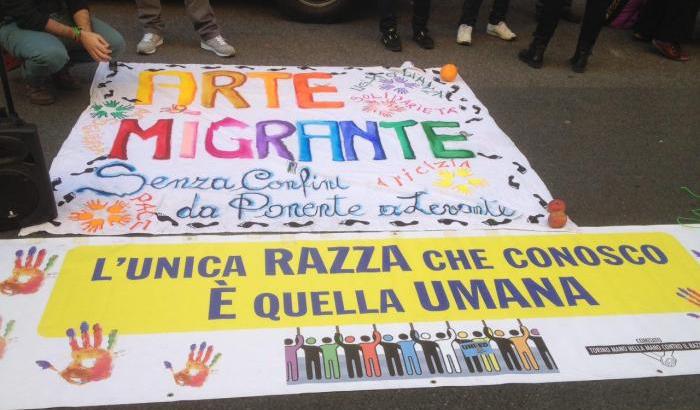 ARTE
UGUAGLIANZA
SOLIDARIETÀ
MIGRANTE
AMICIZIA
Senza Confini
PACE
da Ponente a Levante
L'UNICA RAZZA CHE CONOSCO
È QUELLA UMANA
COMITATO
TORINO MANO NELLA MANO CONTRO IL RAZ